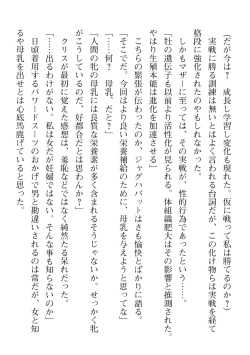 「だが今は？　成長し学習し変化も現れた。仮に戦って私は勝てるのか？」
　実戦に勝る訓練は無いとよく言われる台詞だが、この化け物らは実戦を経て
格段に強化されたのやもしれない。
　しかもマザーに至っては、その実戦が、性的行為であったという……。
「牡の遺伝子も以前より活性化が見られる。体組織肥大はその影響と推測された。
やはり生殖本能は進化を加速させる」
　こちらの緊張が伝わったのか、ジャグハバットはさも愉快とばかりに語る。
「そこだが、今回はより良い栄養補給のために、母乳を与えようと思ってな」
「……何？　母乳、だと？」
「人間の牝の母乳には良質な栄養素が多く含まれるそうじゃないか。せっかく牝
がこうしているのだ、好都合だとは思わんか？」
　クリスが最初に覚えた感想は、羞恥などではなく純然たる呆れだった。
「……出るわけがない。私は女だが妊婦ではない。そんな事も知らないのか」
　日頃着用するパワードスーツのおかげで男と勘違いされるのは常だが、女と知
るや母乳を出せとは心底馬鹿げていると思った。